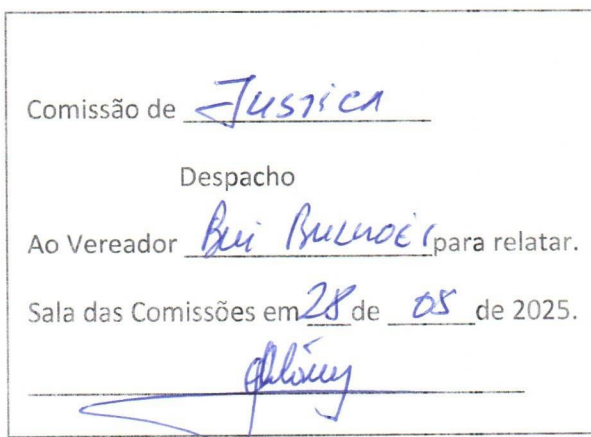 Comissão de Justica
Despacho
Ao Vereador Bui para relatar.
Sala das Comissões em 28 de 05 de 2025.